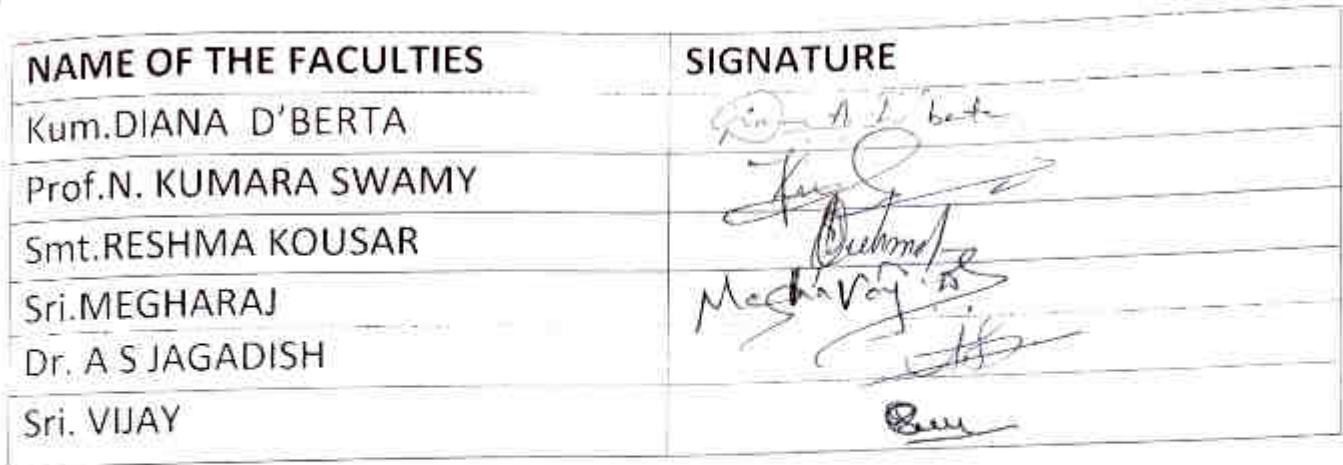 NAME OF THE FACULTIES SIGNATURE
Kum.DIANA D'BERTA
Prof.N. KUMARA SWAMY
Smt.RESHMA KOUSAR
Sri.MEGHARAJ Megharaj
Dr. A S JAGADISH
Sri. VIJAY